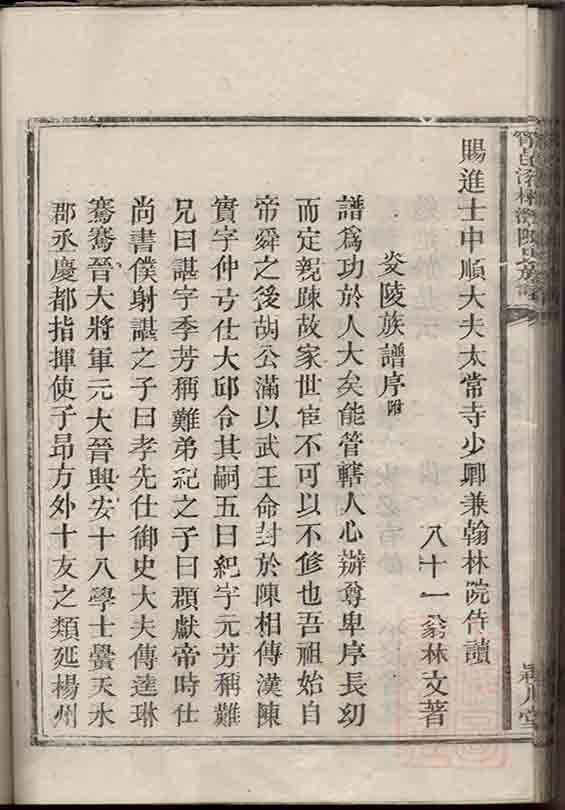 賜進士中順大夫太常寺少卿兼翰林院侍讀
八十一翁林文著
炎陵族譜序附
譜爲功於人大矣能管轄人心辦尊卑序長幼
而定親疎故家世宦不可以不修也吾祖始自
帝舜之後胡公滿以武王命封於陳相傳漢陳
實字仲弓仕大邱令其嗣五曰紀字元芳稱難
兄曰諶字季芳稱難弟紀之子曰羣獻帝時仕
尚書僕射諶之子曰孝先仕御史大夫傳逵琳
騫騫晉大將軍元大晉興安十八學士曇天水
郡丞慶都指揮使子昂方外十友之類延楊州
潁川堂